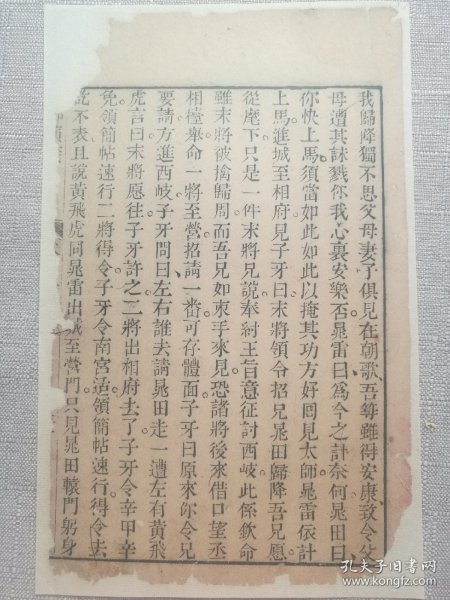 我歸降獨不思父母妻子俱見在朝歌吾等雖得安康致令父
母遭其誅戮你我心裏安樂否晁雷曰爲今之計奈何晁田曰
你快上馬須當如此如此以掩其功方好囘見太師晁雷依計
上馬進城至相府見子牙曰末將領令招兄晁田歸降吾兄愿
從麾下只是一件末將兄說奉紂王旨意征討西岐此係欽命
雖末將被擒歸周而吾兄如束手來見恐諸將後來借口望丞
相擡舉命一將至營招請一番可存體面子牙曰原來你令兄
要請方進西岐子牙問曰左右誰去請晁田走一遭左有黃飛
虎言曰末將愿往子牙許之二將出相府去了子牙令辛甲辛
免領簡帖速行二將得令子牙令南宮适領簡帖速行得令去
訖不表且說黃飛虎同晁雷出城至營門只見晁田轅門躬身
孔夫子旧书网